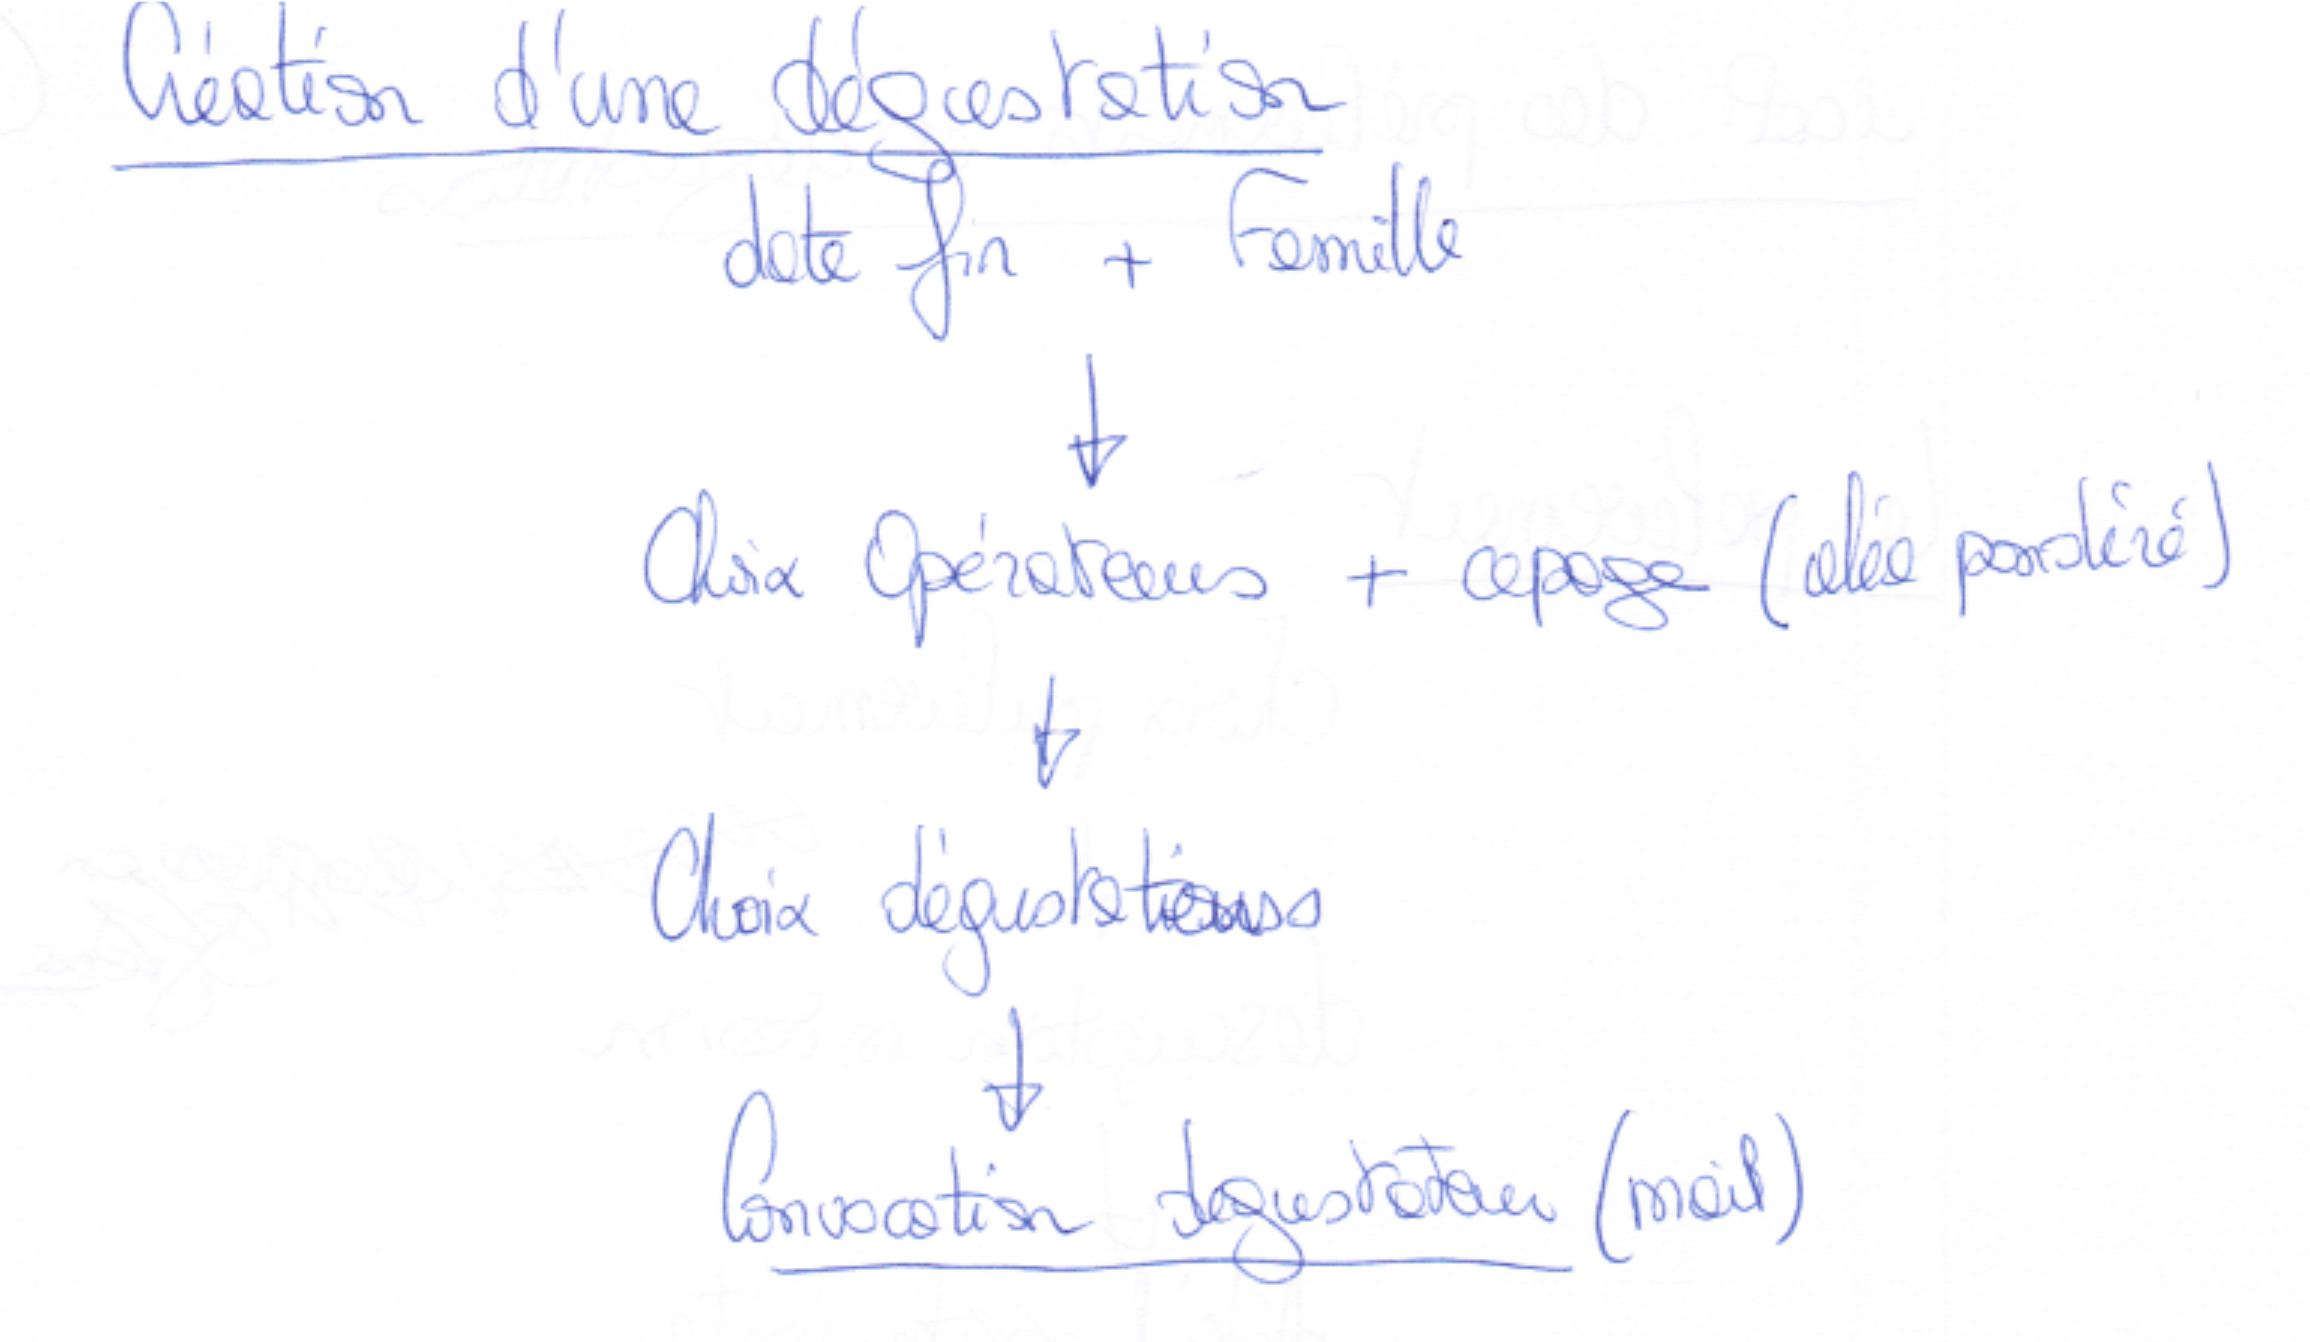 Création d'une dégustation
date fin + Famille
↓
Choix Opérateurs + cepage (aléa pondéré)
↓
Choix dégustateurs
↓
Convocation dégustateur (mail)